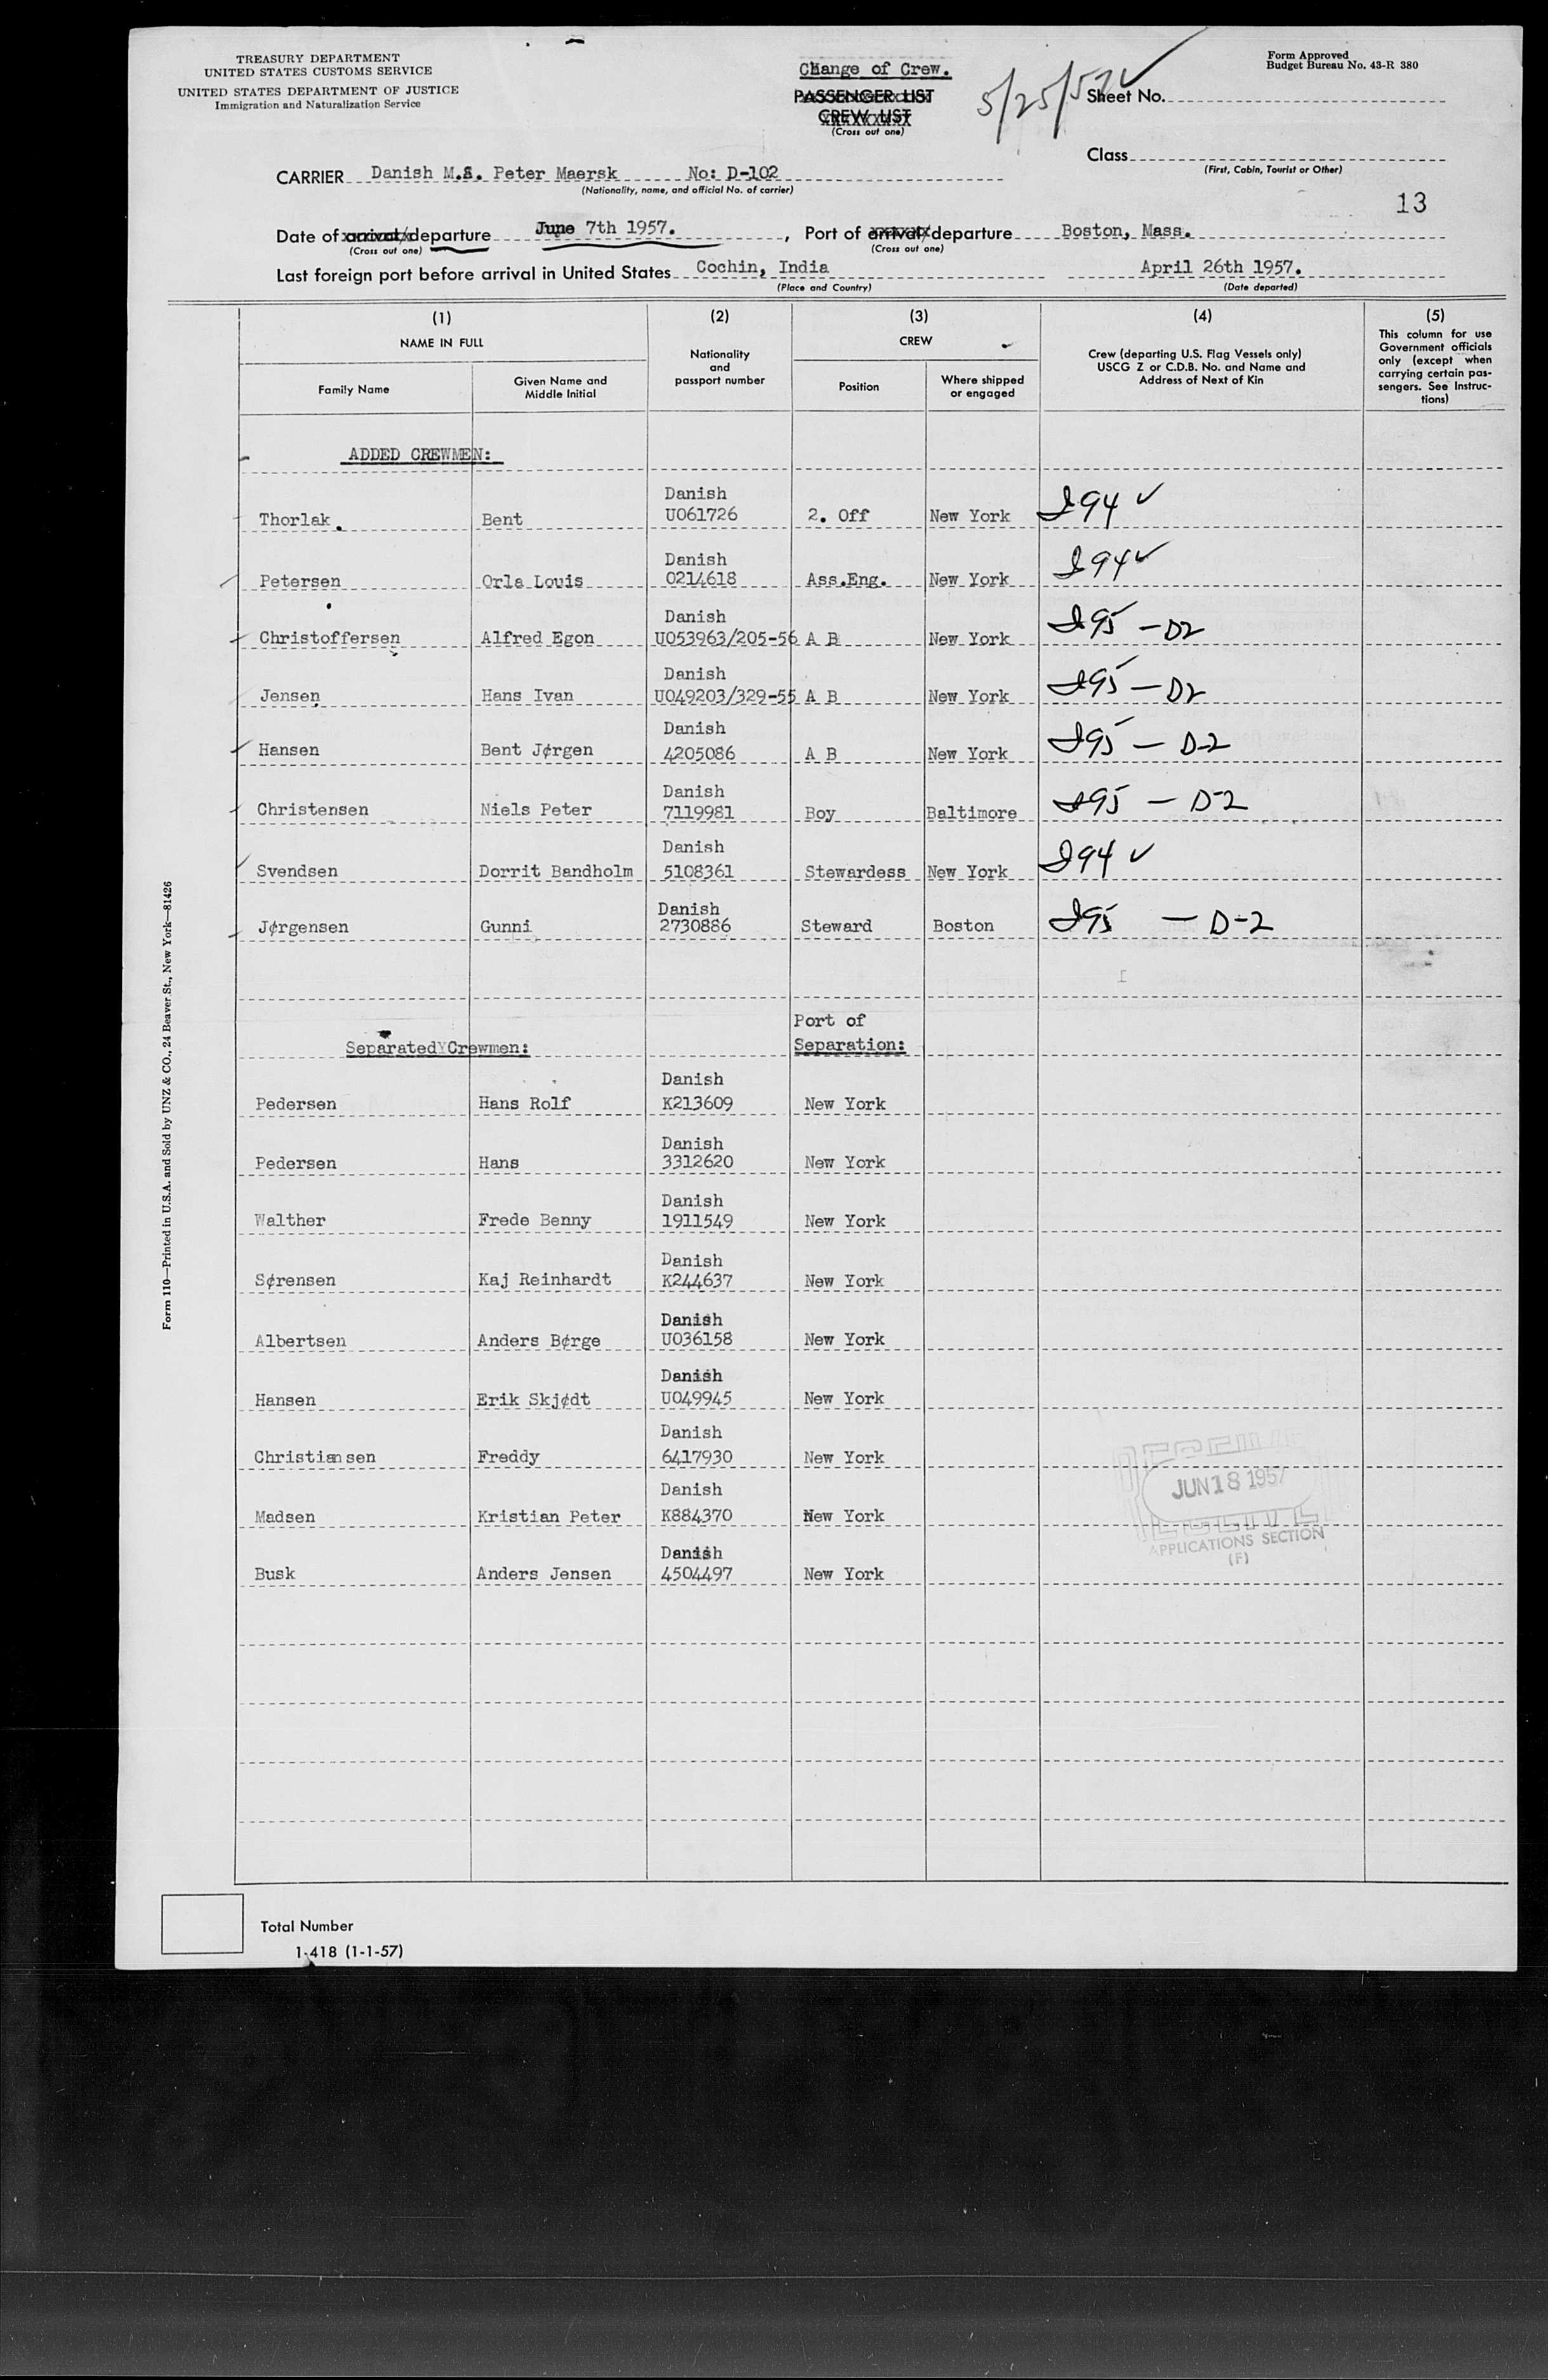 TREASURY DEPARTMENT
UNITED STATES CUSTOMS SERVICE
UNITED STATES DEPARTMENT OF JUSTICE
Immigration and Naturalization Service
Change of Crew.
PASSENGER LIST
CREW LIST
(Cross out one)
5/25/57
Form Approved
Budget Bureau No. 43-R 380
Sheet No.
Class
(First, Cabin, Tourist or Other)
CARRIER Danish M.S. Peter Maersk No: D-102
(Nationality, name, and official No. of carrier)
13
Date of arrival/departure June 7th 1957. , Port of arrival/departure Boston, Mass.
(Cross out one) (Cross out one)
Last foreign port before arrival in United States Cochin, India April 26th 1957.
(Place and Country) (Date departed)
(1) (2) (3) (4) (5)
NAME IN FULL
Family Name
Given Name and Middle Initial
Nationality and passport number
CREW
Position
Where shipped or engaged
Crew (departing U.S. Flag Vessels only)
USCG Z or C.D.B. No. and Name and
Address of Next of Kin
This column for use
Government officials
only (except when
carrying certain pas-
sengers. See Instruc-
tions)
ADDED CREWMEN:
Thorlak Bent Danish U061726 2. Off New York I94 ✓
Petersen Orla Louis Danish 0214618 Ass.Eng. New York I94 ✓
Christoffersen Alfred Egon Danish U053963/205-56 A B New York I95 - D2
Jensen Hans Ivan Danish U049203/329-55 A B New York I95 - D2
Hansen Bent Jørgen Danish 4205086 A B New York I95 - D-2
Christensen Niels Peter Danish 7119981 Boy Baltimore I95 - D-2
Svendsen Dorrit Bandholm Danish 5108361 Stewardess New York I94 ✓
Jørgensen Gunni Danish 2730886 Steward Boston I95 - D-2
Separated Crewmen: Port of Separation:
Pedersen Hans Rolf Danish K213609 New York
Pedersen Hans Danish 3312620 New York
Walther Frede Benny Danish 1911549 New York
Sørensen Kaj Reinhardt Danish K244637 New York
Albertsen Anders Børge Danish U036158 New York
Hansen Erik Skjødt Danish U049945 New York
Christiansen Freddy Danish 6417930 New York
Madsen Kristian Peter Danish K884370 New York
Busk Anders Jensen Danish 4504497 New York
JUN 18 1957
APPLICATIONS SECTION
(F)
Form 110—Printed in U.S.A. and Sold by UNZ & CO., 24 Beaver St., New York—81426
Total Number
1-418 (1-1-57)